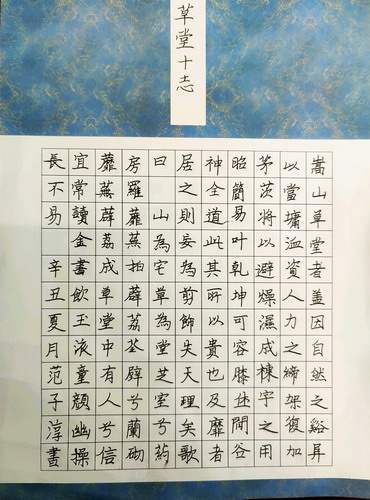 草堂十志
嵩山草堂者盖因自然之谿昇
以當墉洫資人力之締架復加
茅茨將以避燥濕成棟宇之用
昭簡易叶乾坤可容膝休閒谷
神全道此其所以貴也及靡者
居之則妄為剪飾失天理矣歌
曰 山為宅草為堂芝室兮药
房羅蘼蕪拍薜荔荃壁兮蘭砌
蘼蕪薜荔成草堂中有人兮信
宜常讀金書飲玉液童顏幽操
長不易 辛丑夏月范子淳書